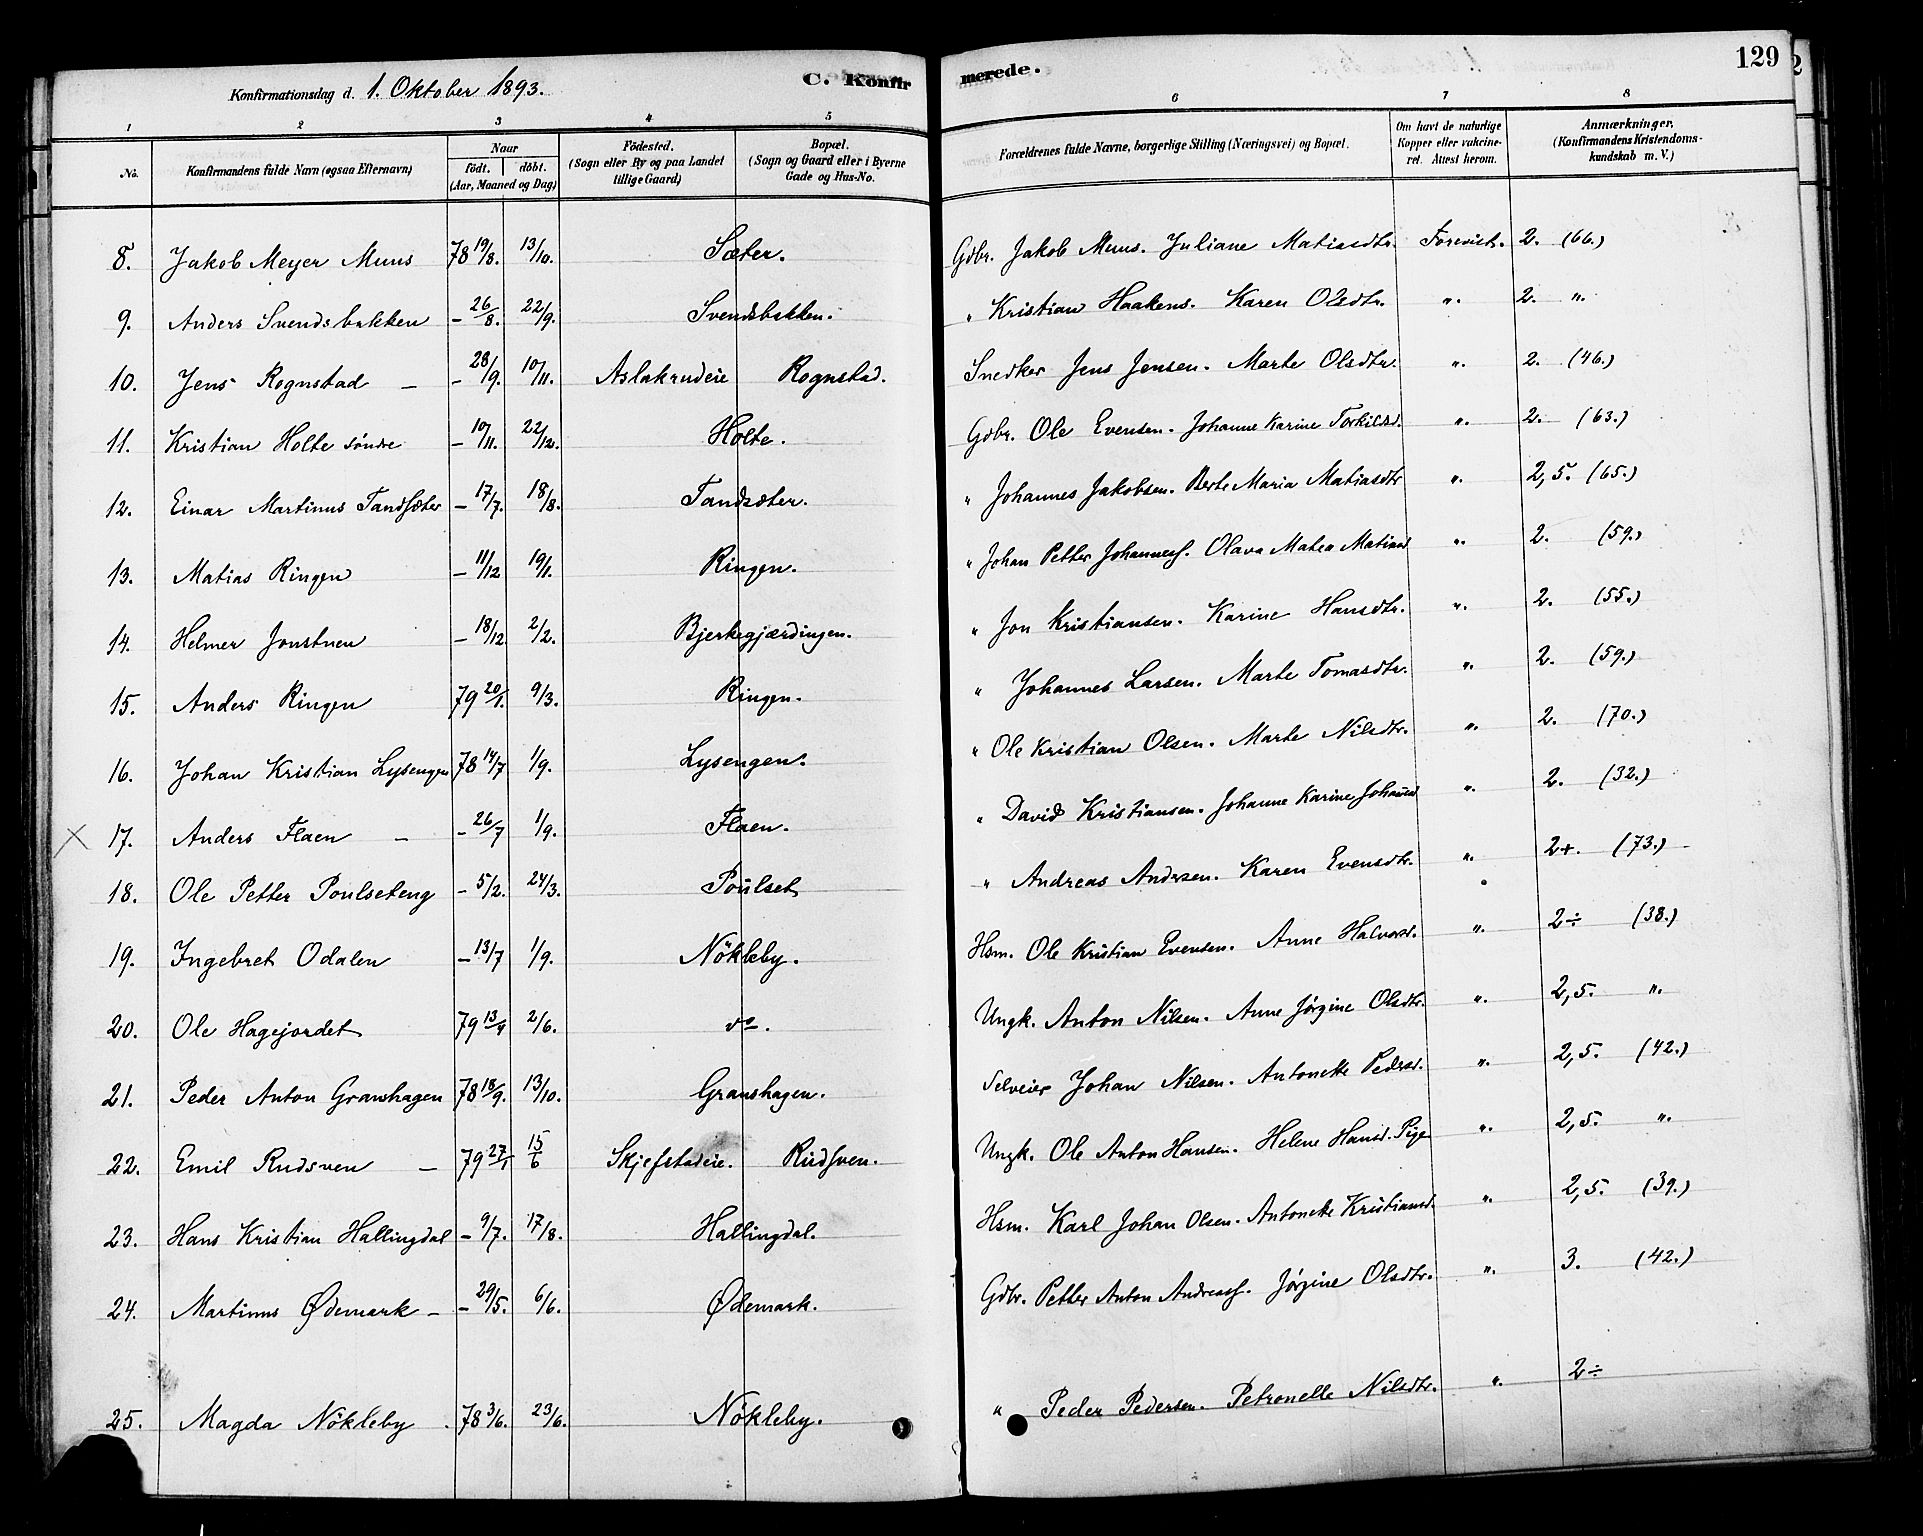 129
Konfirmationsdag d. 1. Oktober 1893. C. Konfirmerede.
1 2 3 4 5 6 7 8
No. Konfirmandens fulde Navn (ogsaa Efternavn) Naar født. døbt. (Aar, Maaned og Dag) Fødested. (Sogn eller By og paa Landet tillige Gaard) Bopæl. (Sogn og Gaard eller i Byerne Gade og Hus-No. Forældrenes fulde Navne, borgerlige Stilling (Næringsvei) og Bopæl. Om havt de naturlige Kopper eller vakcineret. Attest herom. Anmærkninger, (Konfirmandens Kristendomskundskab m. V.)
8. Jakob Meyer Muus 78 19/8. 13/10. Sæter. Gdbr. Jakob Muus. Juliane Matiasdtr. Forevist. 2. (66.)
9. Anders Svendsbakken – 26/8. 22/9. Svendsbakken. " Kristian Haakens. Karen Olsdtr. ". 2. ".
10. Jens Rognstad – – 28/9. 10/11. Aslakrudeie Rognstad. Snedker Jens Jensen. Marte Olsdtr. ". 2. (46.)
11. Kristian Holte søndre – 10/11. 22/12. Holte. Gdbr. Ole Evensen. Johanne Karine Torkilsd. ". 2. (63.)
12. Einar Martinus Tandsæter – 17/7. 18/8. Tandsæter. " Johannes Jakobsen. Berte Maria Matiasdtr ". 2,5. (65.)
13. Matias Ringen – 11/12 19/1. Ringen. " Johan Petter Johannesf. Olava Matea Matiasd ". 2. (59.)
14. Helmer Jonstuen – 18/12 2/2. Bjerkegjærdingen. " Jon Kristiansen. Karine Hansdtr. ". 2. (55.)
15. Anders Ringen 79 20/1. 9/3. Ringen. " Johannes Larsen. Marte Tomasdtr. ". 2. (59.)
16. Johan Kristian Lysengen 78 14/7 1/9. Lysengen. " Ole Kristian Olsen. Marte Nilsdtr. ". 2. (70.)
× 17. Anders Flaen – – 26/7 1/9. Flaen. " David Kristiansen. Johanne Karine Johansd ". 2. (32.)
18. Ole Petter Poulseteng – 5/2. 24/3. Poulset " Andreas Andersen. Karen Evensdtr. ". 2+. (73.)
19. Ingebret Odalen – 13/7 1/9. Nökleby. Hsm. Ole Kristian Evensen. Anne Halvorsd. ". 2÷ (38.)
20. Ole Hagejordet 79 13/4 2/6. do. Ungk. Anton Nilsen. Anne Jørgine Olsdtr. ". 2,5. ".
21. Peder Anton Granshagen 78 18/9. 13/10. Granshagen. Selveier Johan Nilsen. Antonette Pedersd. ". 2,5. (42.)
22. Emil Rudsven – 79 27/1 15/6 Skjefstadeie. Rudsven. Ungk. Ole Anton Hansen. Helene Hansd. Pige ". 2,5. ".
23. Hans Kristian Hallingdal – 9/7. 17/8. Hallingdal. Hsm. Karl Johan Olsen. Antonette Kristiansd. ". 2,5. (39.)
24. Martinus Ødemark – – 29/5. 6/6. Ødemark. Gdbr. Petter Anton Andreasf. Jørgine Olsdtr. ". 3. (42.)
25. Magda Nökleby . 78 3/6. 23/6. Nökleby. " Peder Pedersen. Petronelle Nilsdtr. ". 2÷